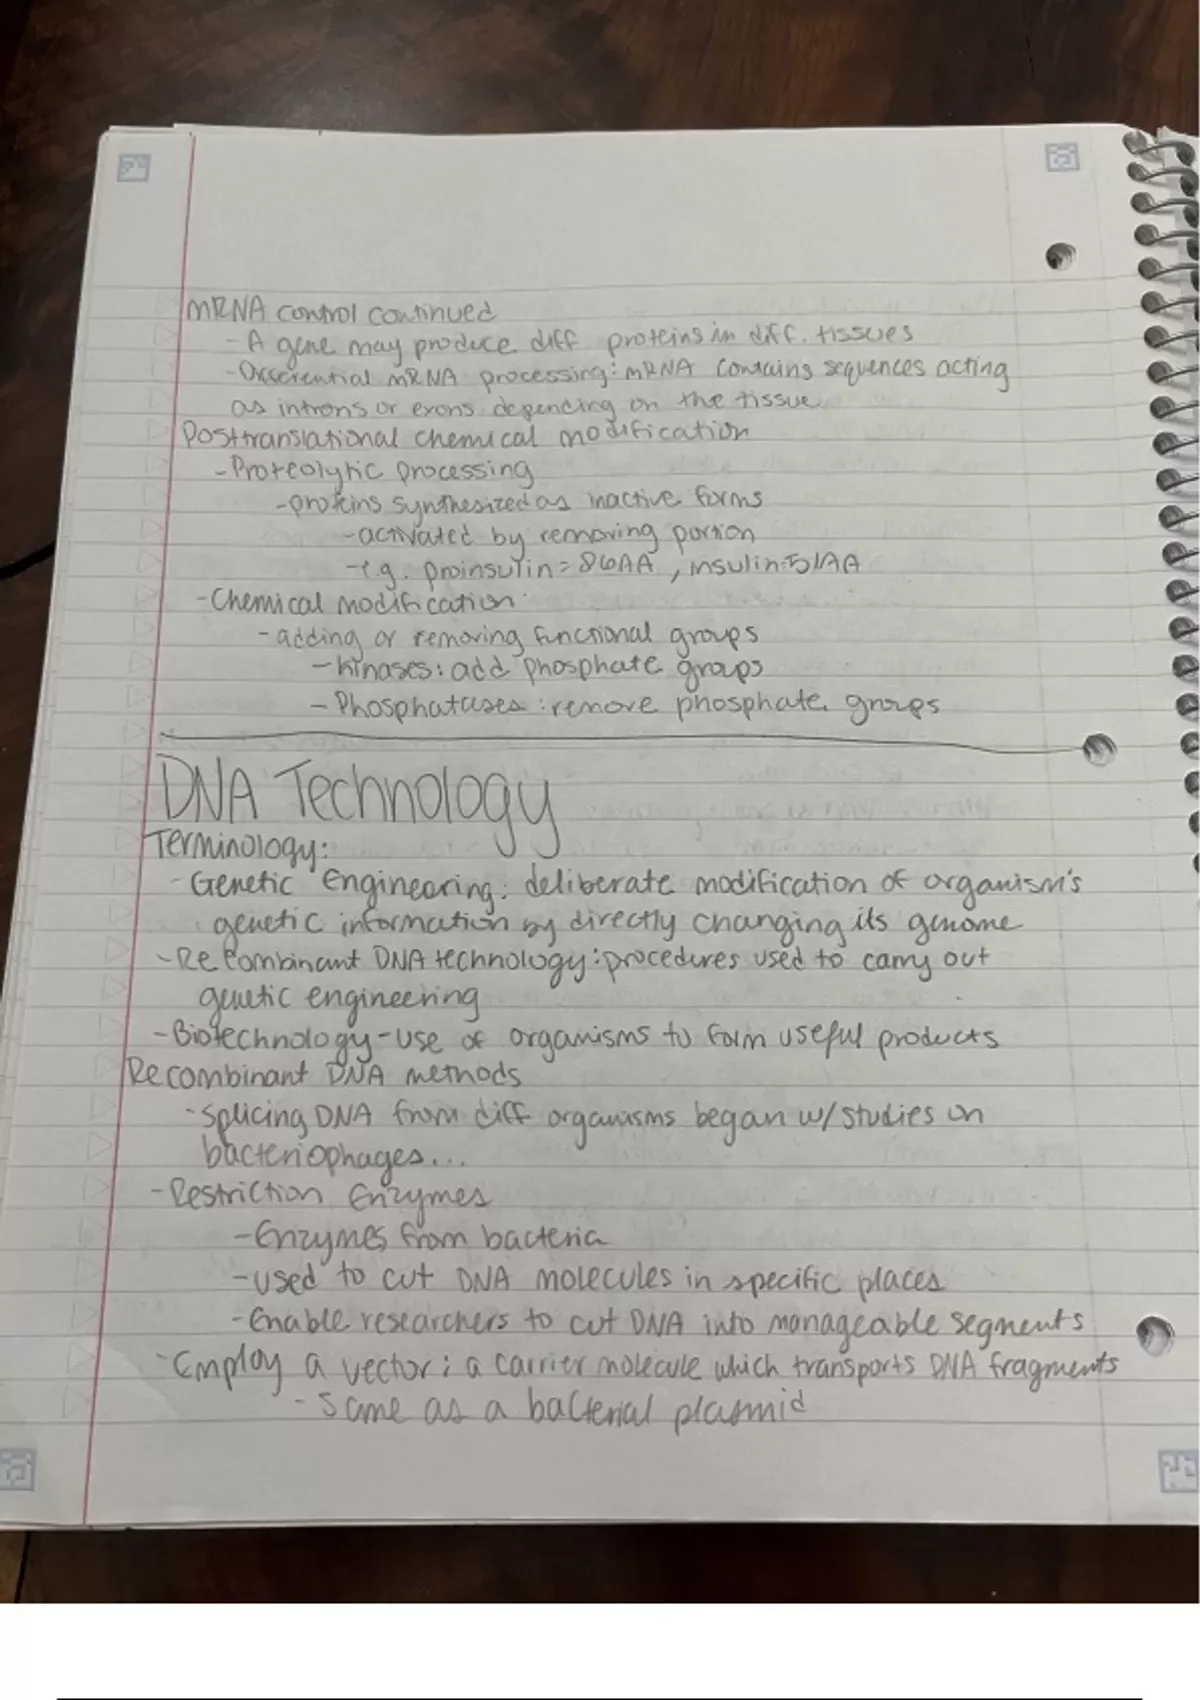 mRNA control continued
- A gene may produce diff proteins in diff. tissues
- Differential mRNA processing: mRNA contains sequences acting
as introns or exons depending on the tissue
Posttranslational chemical modification
- Proteolytic processing
- proteins synthesized as inactive forms
- activated by removing portion
- e.g. proinsulin = 86AA, insulin = 51AA
- Chemical modification:
- adding or removing functional groups
- kinases: add phosphate groups
- Phosphatases: remove phosphate groups
DNA Technology
Terminology:
- Genetic Engineering: deliberate modification of organism's
genetic information by directly changing its genome
- Recombinant DNA technology: procedures used to carry out
genetic engineering
- Biotechnology - use of organisms to form useful products
Recombinant DNA methods
- Splicing DNA from diff organisms began w/ studies on
bacteriophages...
- Restriction Enzymes
- Enzymes from bacteria
- used to cut DNA molecules in specific places
- Enable researchers to cut DNA into manageable segments
- Employ a vector: a carrier molecule which transports DNA fragments
- Same as a bacterial plasmid